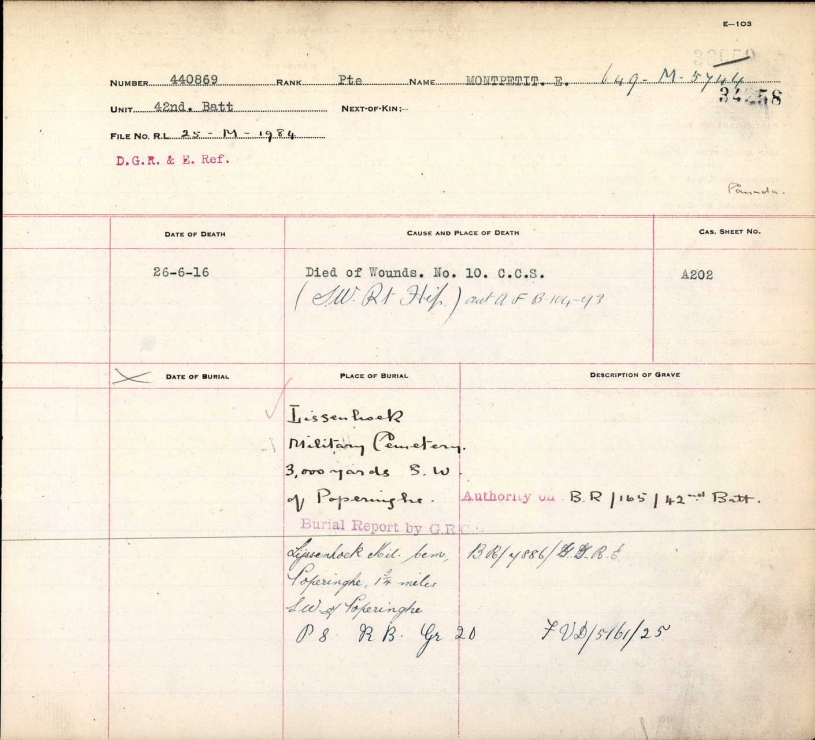 E—103
NUMBER 440869 RANK Pte NAME MONTPETIT. E. 649-M-5744
34258
UNIT 42nd. Batt NEXT-OF-KIN:—
FILE NO. R.L. 25 - M - 1984
D.G.R. & E. Ref.
Canada.
DATE OF DEATH CAUSE AND PLACE OF DEATH CAS. SHEET NO.
26-6-16 Died of Wounds. No. 10. C.C.S. A202
(S.W. Rt Hip.) aut A F B-104-43
DATE OF BURIAL PLACE OF BURIAL DESCRIPTION OF GRAVE
Lissenhoek
Military Cemetery.
3,000 yards S.W.
of Poperinghe. Authority on B.R/165/42nd Batt.
Burial Report by G.R.C.
Lijssenhoek Mil. Cem, BR/4886/D.G.R.E
Poperinghe, 1¾ miles
S.W. of Poperinghe
P 8. R B. Gr 20 FVD/5161/25